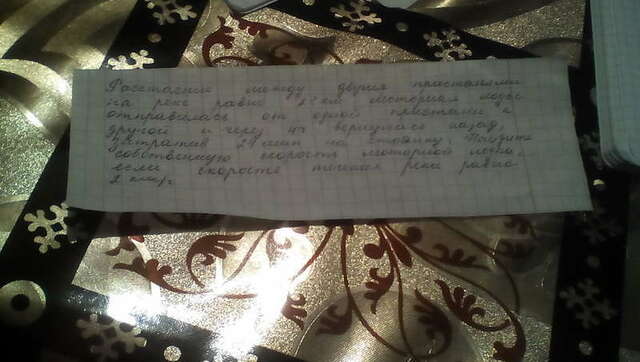 Расстояние между двумя пристанями
на реке равно км моторная лодка
отправилась от одной пристани к
другой и через 4ч вернулась назад,
затратив 24 мин на стоянку. Найдите
собственную скорость моторной лодки,
если скорость течения реки равна
2 км/ч.